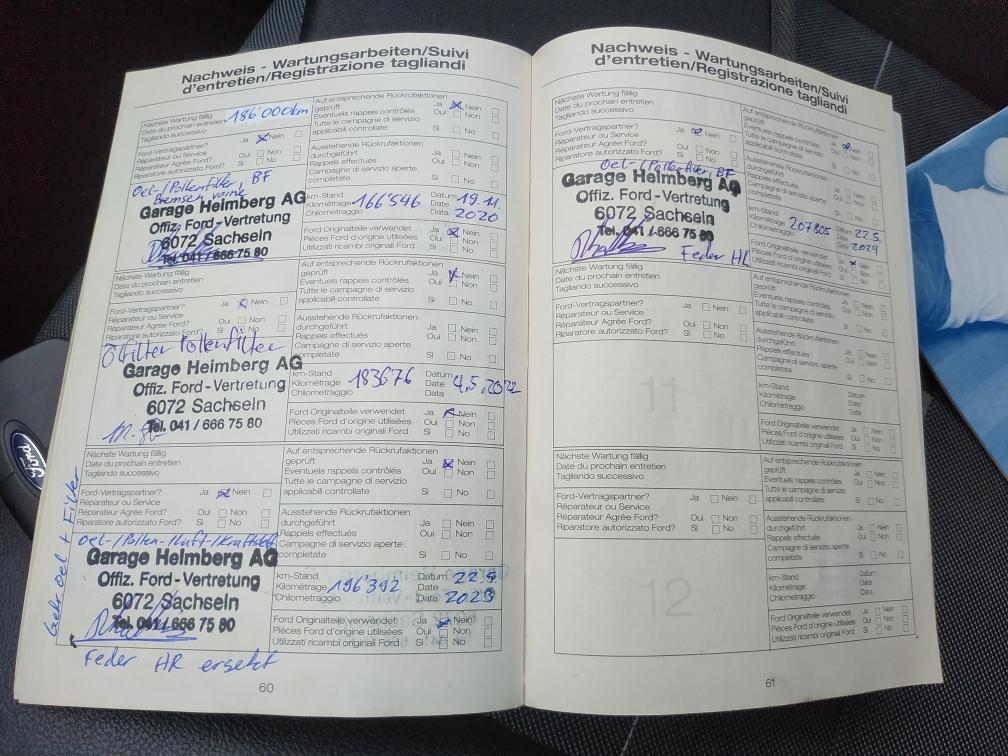 Nachweis - Wartungsarbeiten/Suivi
d'entretien/Registrazione tagliandi
Nächste Wartung fällig
Date du prochain entretien 186'000km
Tagliando successivo
Auf entsprechende Rückrufaktionen
geprüft Ja Nein
Eventuels rappels contrôlés Oui Non
Tutte le campagne di servizio
applicabili controllate Si No
Ford-Vertragspartner? Ja Nein
Réparateur ou Service
Réparateur Agrée Ford? Oui Non
Riparatore autorizzato Ford? Si No
Ausstehende Rückrufaktionen
durchgeführt Ja Nein
Rappels effectués Oui Non
Campagne di servizio aperte
completate Si No
Oel-/Pollenfilter, BF
Bremsen vorne
Garage Heimberg AG
Offiz. Ford-Vertretung
6072 Sachseln
Tel. 041 / 666 75 80
km-Stand Datum 19.11.
Kilométrage 166'546 Date
Chilometraggio Data 2020
Ford Originalteile verwendet Ja Nein
Pièces Ford d'origine utilisées Oui Non
Utilizzati ricambi originali Ford Si No
Nächste Wartung fällig
Date du prochain entretien
Tagliando successivo
Auf entsprechende Rückrufaktionen
geprüft Ja Nein
Eventuels rappels contrôlés Oui Non
Tutte le campagne di servizio
applicabili controllate Si No
Ford-Vertragspartner? Ja Nein
Réparateur ou Service
Réparateur Agrée Ford? Oui Non
Riparatore autorizzato Ford? Si No
Ausstehende Rückrufaktionen
durchgeführt Ja Nein
Rappels effectués Oui Non
Campagne di servizio aperte
completate Si No
Ölfilter Pollenfilter
Garage Heimberg AG
Offiz. Ford-Vertretung
6072 Sachseln
Tel. 041 / 666 75 80
km-Stand Datum
Kilométrage 183676 Date 4.5.2022
Chilometraggio Data
Ford Originalteile verwendet Ja Nein
Pièces Ford d'origine utilisées Oui Non
Utilizzati ricambi originali Ford Si No
Nächste Wartung fällig
Date du prochain entretien
Tagliando successivo
Auf entsprechende Rückrufaktionen
geprüft Ja Nein
Eventuels rappels contrôlés Oui Non
Tutte le campagne di servizio
applicabili controllate Si No
Ford-Vertragspartner? Ja Nein
Réparateur ou Service
Réparateur Agrée Ford? Oui Non
Riparatore autorizzato Ford? Si No
Ausstehende Rückrufaktionen
durchgeführt Ja Nein
Rappels effectués Oui Non
Campagne di servizio aperte
completate Si No
Oel-/Pollen-/Luft-/Kraftstoff
Garage Heimberg AG
Offiz. Ford-Vertretung
6072 Sachseln
Tel. 041 / 666 75 80
km-Stand Datum 22.5.
Kilométrage 196'392 Date
Chilometraggio Data 2023
Ford Originalteile verwendet Ja Nein
Pièces Ford d'origine utilisées Oui Non
Utilizzati ricambi originali Ford Si No
Getr. oel + Filter
Feder HR ersetzt
60
Ford
Nachweis - Wartungsarbeiten/Suivi
d'entretien/Registrazione tagliandi
Nächste Wartung fällig
Date du prochain entretien
Tagliando successivo
Auf entsprechende Rückrufaktionen
geprüft Ja Nein
Eventuels rappels contrôlés Oui Non
Tutte le campagne di servizio
applicabili controllate Si No
Ford-Vertragspartner? Ja Nein
Réparateur ou Service
Réparateur Agrée Ford? Oui Non
Riparatore autorizzato Ford? Si No
Ausstehende Rückrufaktionen
durchgeführt Ja Nein
Rappels effectués Oui Non
Campagne di servizio aperte
completate Si No
Oel-/Pollenfilter, BF
Garage Heimberg AG
Offiz. Ford-Vertretung
6072 Sachseln
Tel. 041 / 666 75 80
Feder HL
km-Stand Datum 22.5.
Kilométrage 207805 Date
Chilometraggio Data 2024
Ford Originalteile verwendet Ja Nein
Pièces Ford d'origine utilisées Oui Non
Utilizzati ricambi originali Ford Si No
Nächste Wartung fällig
Date du prochain entretien
Tagliando successivo
Auf entsprechende Rückrufaktionen
geprüft Ja Nein
Eventuels rappels contrôlés Oui Non
Tutte le campagne di servizio
applicabili controllate Si No
Ford-Vertragspartner? Ja Nein
Réparateur ou Service
Réparateur Agrée Ford? Oui Non
Riparatore autorizzato Ford? Si No
Ausstehende Rückrufaktionen
durchgeführt Ja Nein
Rappels effectués Oui Non
Campagne di servizio aperte
completate Si No
11
km-Stand Datum
Kilométrage Date
Chilometraggio Data
Ford Originalteile verwendet Ja Nein
Pièces Ford d'origine utilisées Oui Non
Utilizzati ricambi originali Ford Si No
Nächste Wartung fällig
Date du prochain entretien
Tagliando successivo
Auf entsprechende Rückrufaktionen
geprüft Ja Nein
Eventuels rappels contrôlés Oui Non
Tutte le campagne di servizio
applicabili controllate Si No
Ford-Vertragspartner? Ja Nein
Réparateur ou Service
Réparateur Agrée Ford? Oui Non
Riparatore autorizzato Ford? Si No
Ausstehende Rückrufaktionen
durchgeführt Ja Nein
Rappels effectués Oui Non
Campagne di servizio aperte
completate Si No
12
km-Stand Datum
Kilométrage Date
Chilometraggio Data
Ford Originalteile verwendet Ja Nein
Pièces Ford d'origine utilisées Oui Non
Utilizzati ricambi originali Ford Si No
61